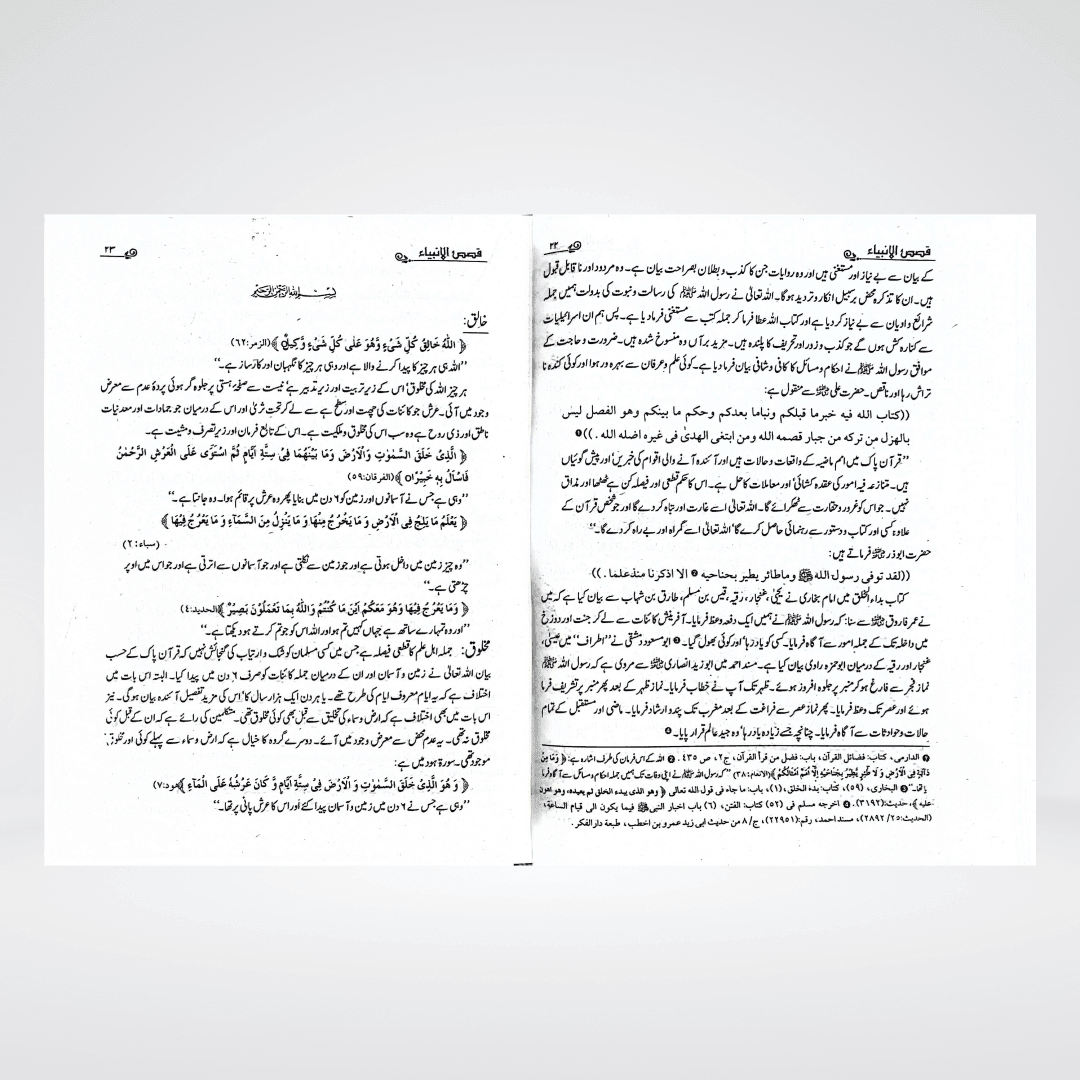 قصص الانبیاء ۲۲
کے بیان سے بے نیاز اور مستغنی ہیں اور وہ روایات جن کا کذب و بطلان بصراحت بیان ہے۔ وہ مردود اور ناقابل قبول
ہیں۔ ان کا تذکرہ محض برسبیل انکار و تردید ہوگا۔ اللہ تعالیٰ نے رسول اللہ ﷺ کی رسالت و نبوت کی بدولت ہمیں جملہ
شرائع و ادیان سے بے نیاز کر دیا ہے اور کتاب اللہ عطا فرما کر جملہ کتب سے مستغنی فرما دیا ہے۔ پس ہم ان اسرائیلیات
سے کنارہ کش ہوں گے جو کذب و زور اور تحریف کا پلندہ ہیں۔ مزید برآں وہ منسوخ شدہ ہیں۔ ضرورت و حاجت کے
موافق رسول اللہ ﷺ نے احکام و مسائل کا کافی و شافی بیان فرما دیا ہے۔ کوئی علم و عرفان سے بہرہ ور ہوا اور کوئی کندہ نا
تراش رہا اور ناقص۔ حضرت علی ؓ سے منقول ہے:
((کتاب الله فیه خبرما قبلکم ونبأما بعدکم وحکم ما بینکم وهو الفصل لیس
بالهزل من ترکه من جبار قصمه الله ومن ابتغی الهدیٰ فی غیره اضله الله .))
’’قرآن پاک میں امم ماضیہ کے واقعات و حالات ہیں اور آئندہ آنے والی اقوام کی خبریں اور پیش گوئیاں
ہیں۔ متنازعہ فیہ امور کی عقدہ کشائی اور معاملات کا حل ہے۔ اس کا حکم قطعی اور فیصلہ کن ہے ٹھٹھا اور مذاق
نہیں۔ جو اس کو غرور و حقارت سے ٹھکرائے گا۔ اللہ تعالیٰ اسے غارت اور تباہ کر دے گا اور جو شخص قرآن کے
علاوہ کسی اور کتاب و دستور سے رہنمائی حاصل کرے گا‘ اللہ تعالیٰ اسے گمراہ اور بے راہ کر دے گا۔‘‘
حضرت ابو ذر ؓ فرماتے ہیں:
((لقد توفی رسول الله ﷺ وماطائر یطیر بجناحیه الا اذکرنا منه علما .))
کتاب بداء الخلق میں امام بخاری نے یحییٰ، غنجار، رقیہ، قیس بن مسلم، طارق بن شہاب سے بیان کیا ہے کہ میں
نے عمر فاروق ؓ سے سنا: کہ رسول اللہ ﷺ نے ہمیں ایک دفعہ وعظ فرمایا۔ آفرینش کائنات سے لے کر جنت اور دوزخ
میں داخلہ تک کے جملہ امور سے آگاہ فرمایا۔ کسی کو یاد رہا‘ اور کوئی بھول گیا۔ ابو مسعود دمشقی نے ’’اطراف‘‘ میں عیسیٰ،
غنجار اور رقیہ کے درمیان ابو حمزہ راوی بیان کیا ہے۔ مسند احمد میں ابو زید انصاری ؓ سے مروی ہے کہ رسول اللہ ﷺ
نماز فجر سے فارغ ہو کر منبر پر جلوہ افروز ہوئے۔ ظہر تک آپ نے خطاب فرمایا۔ نماز ظہر کے بعد پھر منبر پر تشریف فرما
ہوئے اور عصر تک وعظ فرمایا۔ پھر نماز عصر سے فراغت کے بعد مغرب تک پند و ارشاد فرمایا۔ ماضی اور مستقبل کے تمام
حالات و حوادثات سے آگاہ فرمایا۔ چنانچہ جسے زیادہ یاد رہا‘ وہ جید عالم قرار پایا۔
الدارمی، کتاب: فضائل القرآن، باب: فضل من قرأ القرآن، ج۲، ص ۴۳۵۔ اللہ کے اس فرمان کی طرف اشارہ ہے: ﴿وَمَا مِنْ
دَآبَّةٍ فِی الْاَرْضِ وَ لَا طٰٓئِرٍ یَّطِیْرُ بِجَنَاحَیْهِ اِلَّآ اُمَمٌ اَمْثَالُکُمْ﴾ (الانعام:۳۸) ’’کہ رسول اللہ ﷺ نے اپنی وفات تک ہمیں جملہ احکام و مسائل سے آگاہ فرما
البخاری، (۵۹)، کتاب: بدء الخلق، (۱)، باب: ما جاء فی قول الله تعالی ﴿وهو الذی یبدء الخلق ثم یعیده، وهو اهون
علیه﴾، حدیث: (۳۱۹۲)۔ اخرجه مسلم فی (۵۲) کتاب: الفتن، (۶) باب اخبار النبی ﷺ فیما یکون الی قیام الساعة،
(الحدیث: ۲۵/ ۲۸۹۲)، مسند احمد، رقم: (۲۲۹۵۱)، ج/۸ من حدیث ابی زید عمرو بن اخطب، طبعة دارالفکر.
قصص الانبیاء ۲۳
بسم اللہ الرحمٰن الرحیم
خالق:
﴿ اَللّٰهُ خَالِقُ کُلِّ شَیْءٍ وَّهُوَ عَلٰی کُلِّ شَیْءٍ وَّکِیْلٌ ﴾ (الزمر:۶۲)
’’اللہ ہی ہر چیز کا پیدا کرنے والا ہے اور وہی ہر چیز کا نگہبان اور کارساز ہے۔‘‘
ہر چیز اللہ کی مخلوق‘ اس کے زیر تربیت اور زیر تدبیر ہے‘ نیست سے صفحہ ہستی پر جلوہ گر ہوئی پردۂ عدم سے معرض
وجود میں آئی۔ عرش جو کائنات کی چھت اور سطح ہے سے لے کر تحت ثریٰ اور اس کے درمیان جو جمادات اور معدنیات
ناطق اور ذی روح ہے وہ سب اس کی مخلوق و ملکیت ہے۔ اس کے تابع فرمان اور زیر تصرف و مشیت ہے۔
﴿ الَّذِیْ خَلَقَ السَّمٰوٰتِ وَالْاَرْضَ وَمَا بَیْنَهُمَا فِیْ سِتَّةِ اَیَّامٍ ثُمَّ اسْتَوٰی عَلَی الْعَرْشِ الرَّحْمٰنُ
فَاسْاَلْ بِهٖ خَبِیْرًا۝ ﴾ (الفرقان:۵۹)
’’وہی ہے جس نے آسمانوں اور زمین کو ۶ دن میں بنایا پھر وہ عرش پر قائم ہوا۔ وہ جانتا ہے۔‘‘
﴿ یَعْلَمُ مَا یَلِجُ فِی الْاَرْضِ وَمَا یَخْرُجُ مِنْهَا وَمَا یَنْزِلُ مِنَ السَّمَآءِ وَ مَا یَعْرُجُ فِیْهَا ﴾
(سباء:۲)
’’وہ چیز زمین میں داخل ہوتی ہے اور جو زمین سے نکلتی ہے اور جو آسمانوں سے اترتی ہے اور جو اس میں اوپر
چڑھتی ہے۔‘‘
﴿ وَمَا یَعْرُجُ فِیْهَا وَهُوَ مَعَکُمْ اَیْنَ مَا کُنْتُمْ وَاللّٰهُ بِمَا تَعْمَلُوْنَ بَصِیْرٌ ﴾ (الحدید:٤)
’’اور وہ تمہارے ساتھ ہے جہاں کہیں تم ہو اور اللہ اس کو جو تم کرتے ہو دیکھتا ہے۔‘‘
مخلوق: جملہ اہل علم کا قطعی فیصلہ ہے جس میں کسی مسلمان کو شک و ارتیاب کی گنجائش نہیں کہ قرآن پاک کے حسب
بیان اللہ تعالیٰ نے زمین و آسمان اور ان کے درمیان جملہ کائنات کو صرف ۶ دن میں پیدا کیا۔ البتہ اس بات میں
اختلاف ہے کہ یہ ایام معروف ایام کی طرح تھے۔ یا ہر دن ایک ہزار سال کا‘ اس کی مزید تفصیل آئندہ بیان ہو گی۔ نیز
اس بات میں بھی اختلاف ہے کہ ارض و سماء کی تخلیق سے قبل بھی کوئی مخلوق تھی۔ متکلمین کی رائے ہے کہ ان کے قبل کوئی
مخلوق نہ تھی۔ یہ عدم محض سے معرض وجود میں آئے۔ دوسرے گروہ کا خیال ہے کہ ارض و سماء سے پہلے کوئی اور مخلوق
موجود تھی۔ سورۃ ہود میں ہے:
﴿ وَ هُوَ الَّذِیْ خَلَقَ السَّمٰوٰتِ وَ الْاَرْضَ فِیْ سِتَّةِ اَیَّامٍ وَّ کَانَ عَرْشُهٗ عَلَی الْمَآءِ ﴾ هود:۷)
’’وہی ہے جس نے ۶ دن میں زمین و آسمان پیدا کئے اور اس کا عرش پانی پر تھا۔‘‘